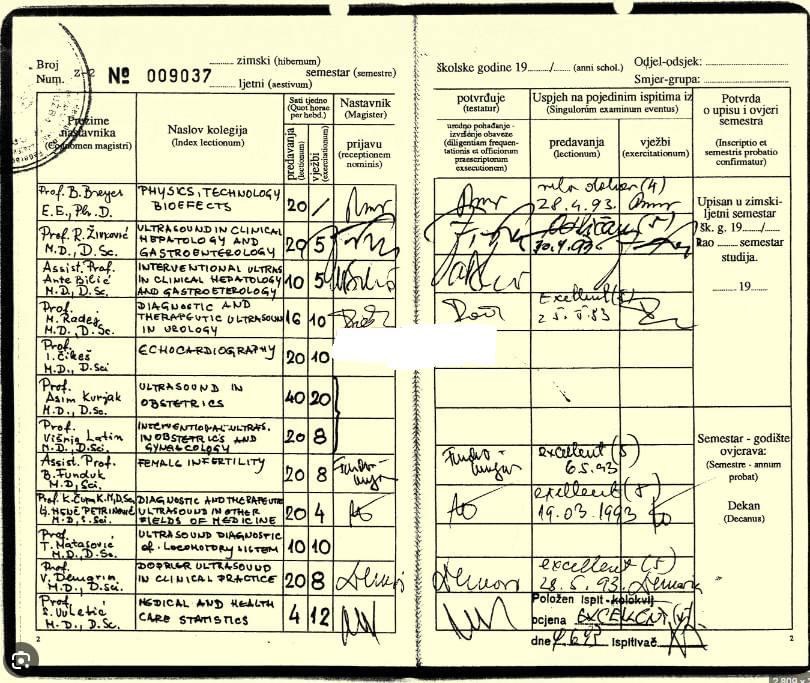 Broj
Num. Z-2 № 009037
zimski (hibernum)
semestar (semestre)
ljetni (aestivum)
Prezime nastavnika
(Cognomen magistri)
Naslov kolegija
(Index lectionum)
Sati tjedno
(Quot horae per hebd.)
predavanja (lectionum)
vježbi (exercitationum)
Nastavnik
(Magister)
prijavu
(receptionem nominis)
Prof. B. Breyer
E.E., Ph. D.
PHYSICS, TECHNOLOGY
BIOEFFECTS
20 /
Prof. R. Živković
M.D., D.Sc.
ULTRASOUND IN CLINICAL
HEPATOLOGY AND
GASTROENTEROLOGY
20 5
Assist. Prof.
Ante Bilić
M.D., D.Sc.
INTERVENTIONAL ULTRAS
IN CLINICAL HEPATOLOGY
AND GASTROETEROLOGY
10 5
Prof.
M. Radej
M.D., D.Sc.
DIAGNOSTIC AND
THERAPEUTIC ULTRASOUND
IN UROLOGY
16 10
Prof.
I. Čikeš
M.D., D.Sci
ECHOCARDIOGRAPHY
20 10
Prof.
Asim Kurjak
M.D., D.Sc.
ULTRASOUND IN
OBSTETRICS
40 20
Prof.
Višnja Latin
M.D., D.Sci.
INTERVENTIONAL ULTRAS.
IN OBSTETRICS AND
GYNAECOLOGY
20 8
Assist. Prof.
B. Funduk
M.D., Sci.
FEMALE INFERTILITY
20 8
DIAGNOSTIC AND THERAPEUTIC
ULTRASOUND IN OTHER
FIELDS OF MEDICINE
20 4
Prof.
T. Matasović
M.D., D.Sc.
ULTRASOUND DIAGNOSTIC
of. LOCOMOTORY SISTEM
10 10
Prof.
V. Demarin
M.D., D.Sci.
DOPPLER ULTRASOUND
IN CLINICAL PRACTICE
20 8
Prof.
S. Vuletić
M.D., D.Sc.
MEDICAL AND HEALTH
CARE STATISTICS
4 12
2
školske godine 19 / (anni schol.)
Odjel-odsjek:
Smjer-grupa:
potvrđuje
(testatur)
uredno pohađanje -
izvršenje obaveze
(diligentiam frequen-
tationis et officiorum
praescriptorum
exsecutionem)
Uspjeh na pojedinim ispitima iz
(Singulorum examinum eventus)
predavanja
(lectionum)
vježbi
(exercitationum)
Potvrda
o upisu i ovjeri
semestra
(Inscriptio et
semestris probatio
confirmatur)
(4)
28.4.93.
(5)
30.4.93
Exellent (5)
excellent (5)
6.5.93
excellent (5)
19.03.1993
excellent (5)
28.5.93. Demarin
Položen ispit - kolokvij
ocjena EXCELLENT
dne Ispitivač
Upisan u zimski-
ljetni semestar
šk. g. 19 /
Kao semestar
studija.
19
Semestar - godište
ovjerava:
(Semestre - annum
probat)
Dekan
(Decanus)
2